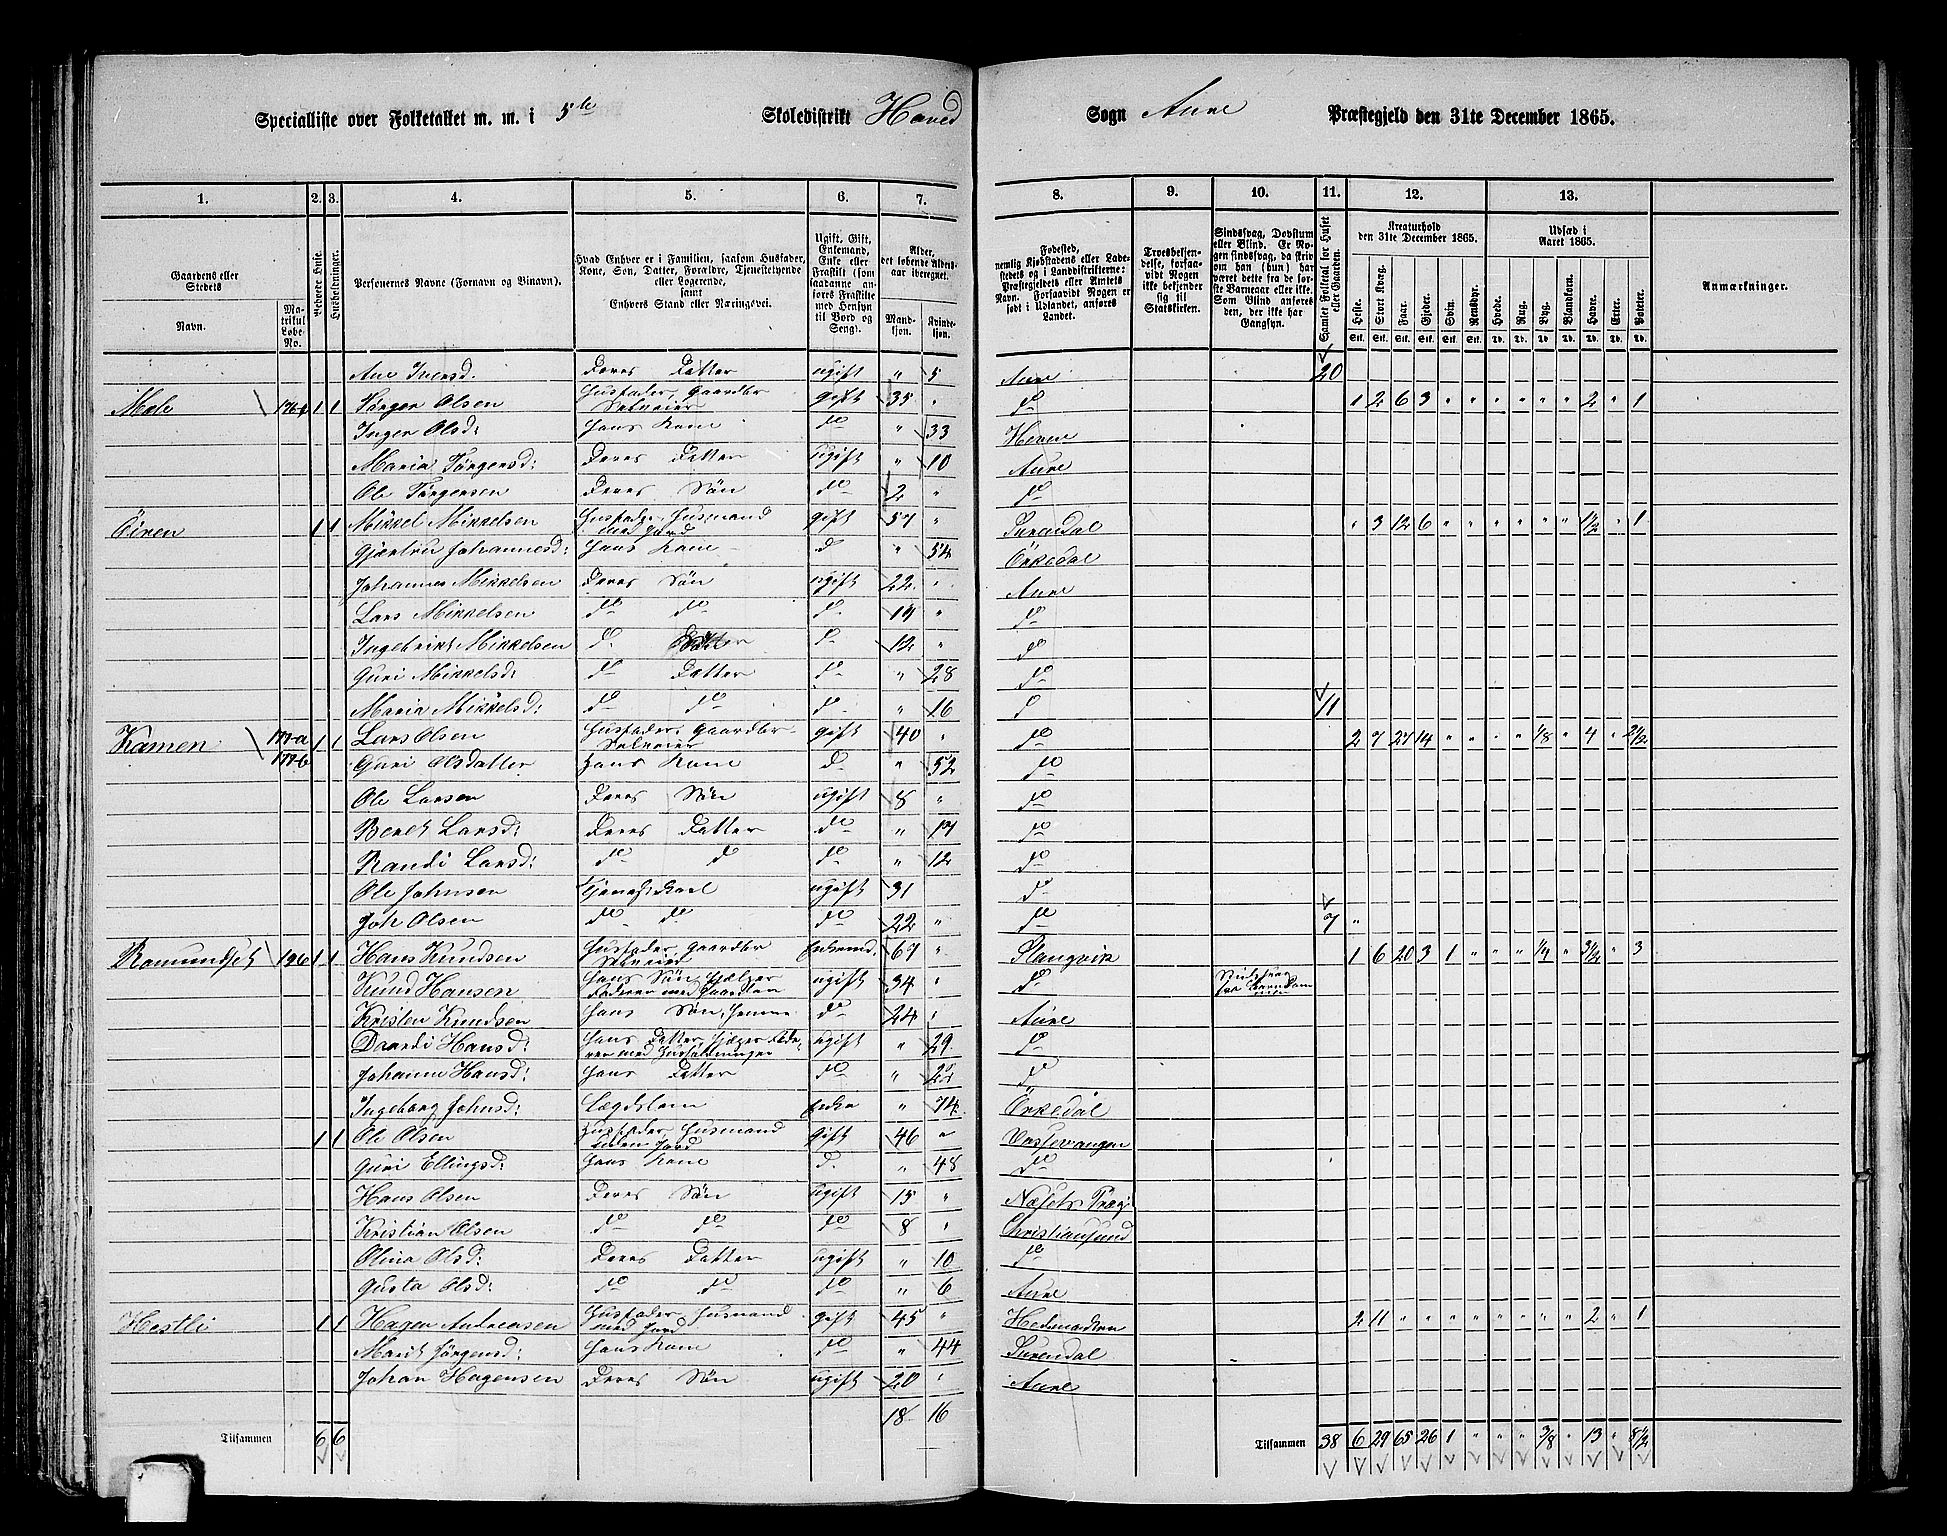 Specialliste over Folketallet m. m. i 5te Skoledistrikt Hoved Sogn Aure Præstegjeld den 31te December 1865.
1. 2. 3. 4. 5. 6. 7. 8. 9. 10. 11. 12. 13.
Gaardens eller Stedets Navn. Matrikul Løbe-No. Beboede Huse. Husholdninger.
Personernes Navne (Fornavn og Binavn).
Hvad Enhver er i Familien, saasom Husfader, Kone, Søn, Datter, Forældre, Tjenestetyende eller Logerende, samt Enhvers Stand eller Næringsvei.
Ugift, Gift, Enkemand, Enke eller Fraskilt (som saadanne anføres Fraskilte med Hensyn til Bord og Seng).
Alder, det løbende Aldersaar iberegnet. Mandkjøn. Kvindekjøn.
Fødested, nemlig Kjøbstadens eller Ladestedets og i Landdistrikterne: Præstegjeldets eller Amtets Navn. Forsaavidt Nogen er født i Udlandet, anføres Landet.
Troesbekjendelse, forsaavidt Nogen ikke bekjender sig til Statskirken.
Sindssvag, Døvstum eller Blind. Er Nogen sindssvag, da skrives om han (hun) har været dette fra de første Barneaar eller ikke. Som Blind anføres den, der ikke har Gangsyn.
Samlet Folketal for Huset eller Gaarden.
Kreaturhold den 31te December 1865.
Heste. Stort Kvæg. Faar. Gjeder. Svin. Rensdyr.
Udsæd i Aaret 1865.
Hvede. Rug. Byg. Blandkorn. Havre. Erter. Poteter.
Anmærkninger.
Ane Iversd. Deres Datter ugift " 5 Aure 20
Mele 1 1 Jørgen Olsen Husfader, Gaardbr Selveier gift 35 " do 1 2 6 3 " " " " " " 2 " 1
Inger Olsd: Hans Kone do " 33 Hevne
Maria Jørgensd: Deres Datter ugift " 10 Aure
Ole Jørgensen Deres Søn do 2 " do
Øiren 1 1 Mikkel Mikkelsen Husfader Husmand med Jord gift 57 " Surendal " 3 12 6 " " " " " " 1½ " 1
Gjertru Johannesd: Hans Kone d " 54 Örkedal
Johannes Mikkelsen Deres Søn ugift 22 " Aure
Lars Mikkelsen do do d 19 " do
Ingebrikt Mikkelsen d. d 12 " do
Guri Mikkelsd: do Datter do " 28 do
Maria Mikkelsd: do do d " 16 d 11
Kamen 1 1 Lars Olsen Husfader, Gaardbr Selveier gift 40 " do 2 7 27 14 " " " " 1/8 " 4 " 2½
Guri Olsdatter Hans Kone d " 52 do
Ole Larsen Deres Søn ugift 8 " do
Beret Larsd: Deres Datter do " 17 do
Randi Larsd: do d do " 12 do
Ole Johnsen Tjenestekarl ugift 31 d
Joh Olsen do do do 22 " do 7 "
Romundset 196 1 1 Hans Knudsen Husfader Gaardbr Selveier Enkemd. 67 " Stangvik 1 6 20 3 1 " " " 1/4 " 3½ " 3
Knud Hansen Hans Søn, hjelper Faderen med Gaarden ugift 34 " do
Kristen Knudsen Hans Søn, do 24 " Aure
Daardi Hansd: Hans Datter, hjelper Faderen med Husholdningen ugift " 29 do
Johanne Hansd: Hans Datter do " 22 d
Ingeborg Johnsd: Lægdslem Enke " 74 Örkedal
1 1 Ole Olsen Husfader Husmand uden Jord gift 46 " Vestervangen
Guri Ellingsd: Hans Kone d. " 48 do
Hans Olsen Deres Søn ugift 15 " Næsets Præg:
Kristian Olsen do do do 8 " Christiansund
Olina Olsd: Deres Datter ugift " 10 do
Gusta Olsd: do do do " 6 Aure
Hestli 1 1 Hagen Andreasen Husfader Husmand med Jord gift 45 " Hedemarken 2 11 " " " " " " " " 2 " 1
Marit Jørgensd: Hans Kone do " 44 Surendal
Johan Hagensen Deres Søn ugift 20 " Aure
18 16
Tilsammen 6 6 Tilsammen 38 6 29 65 26 1 " " " 3/8 " 13 " 8½